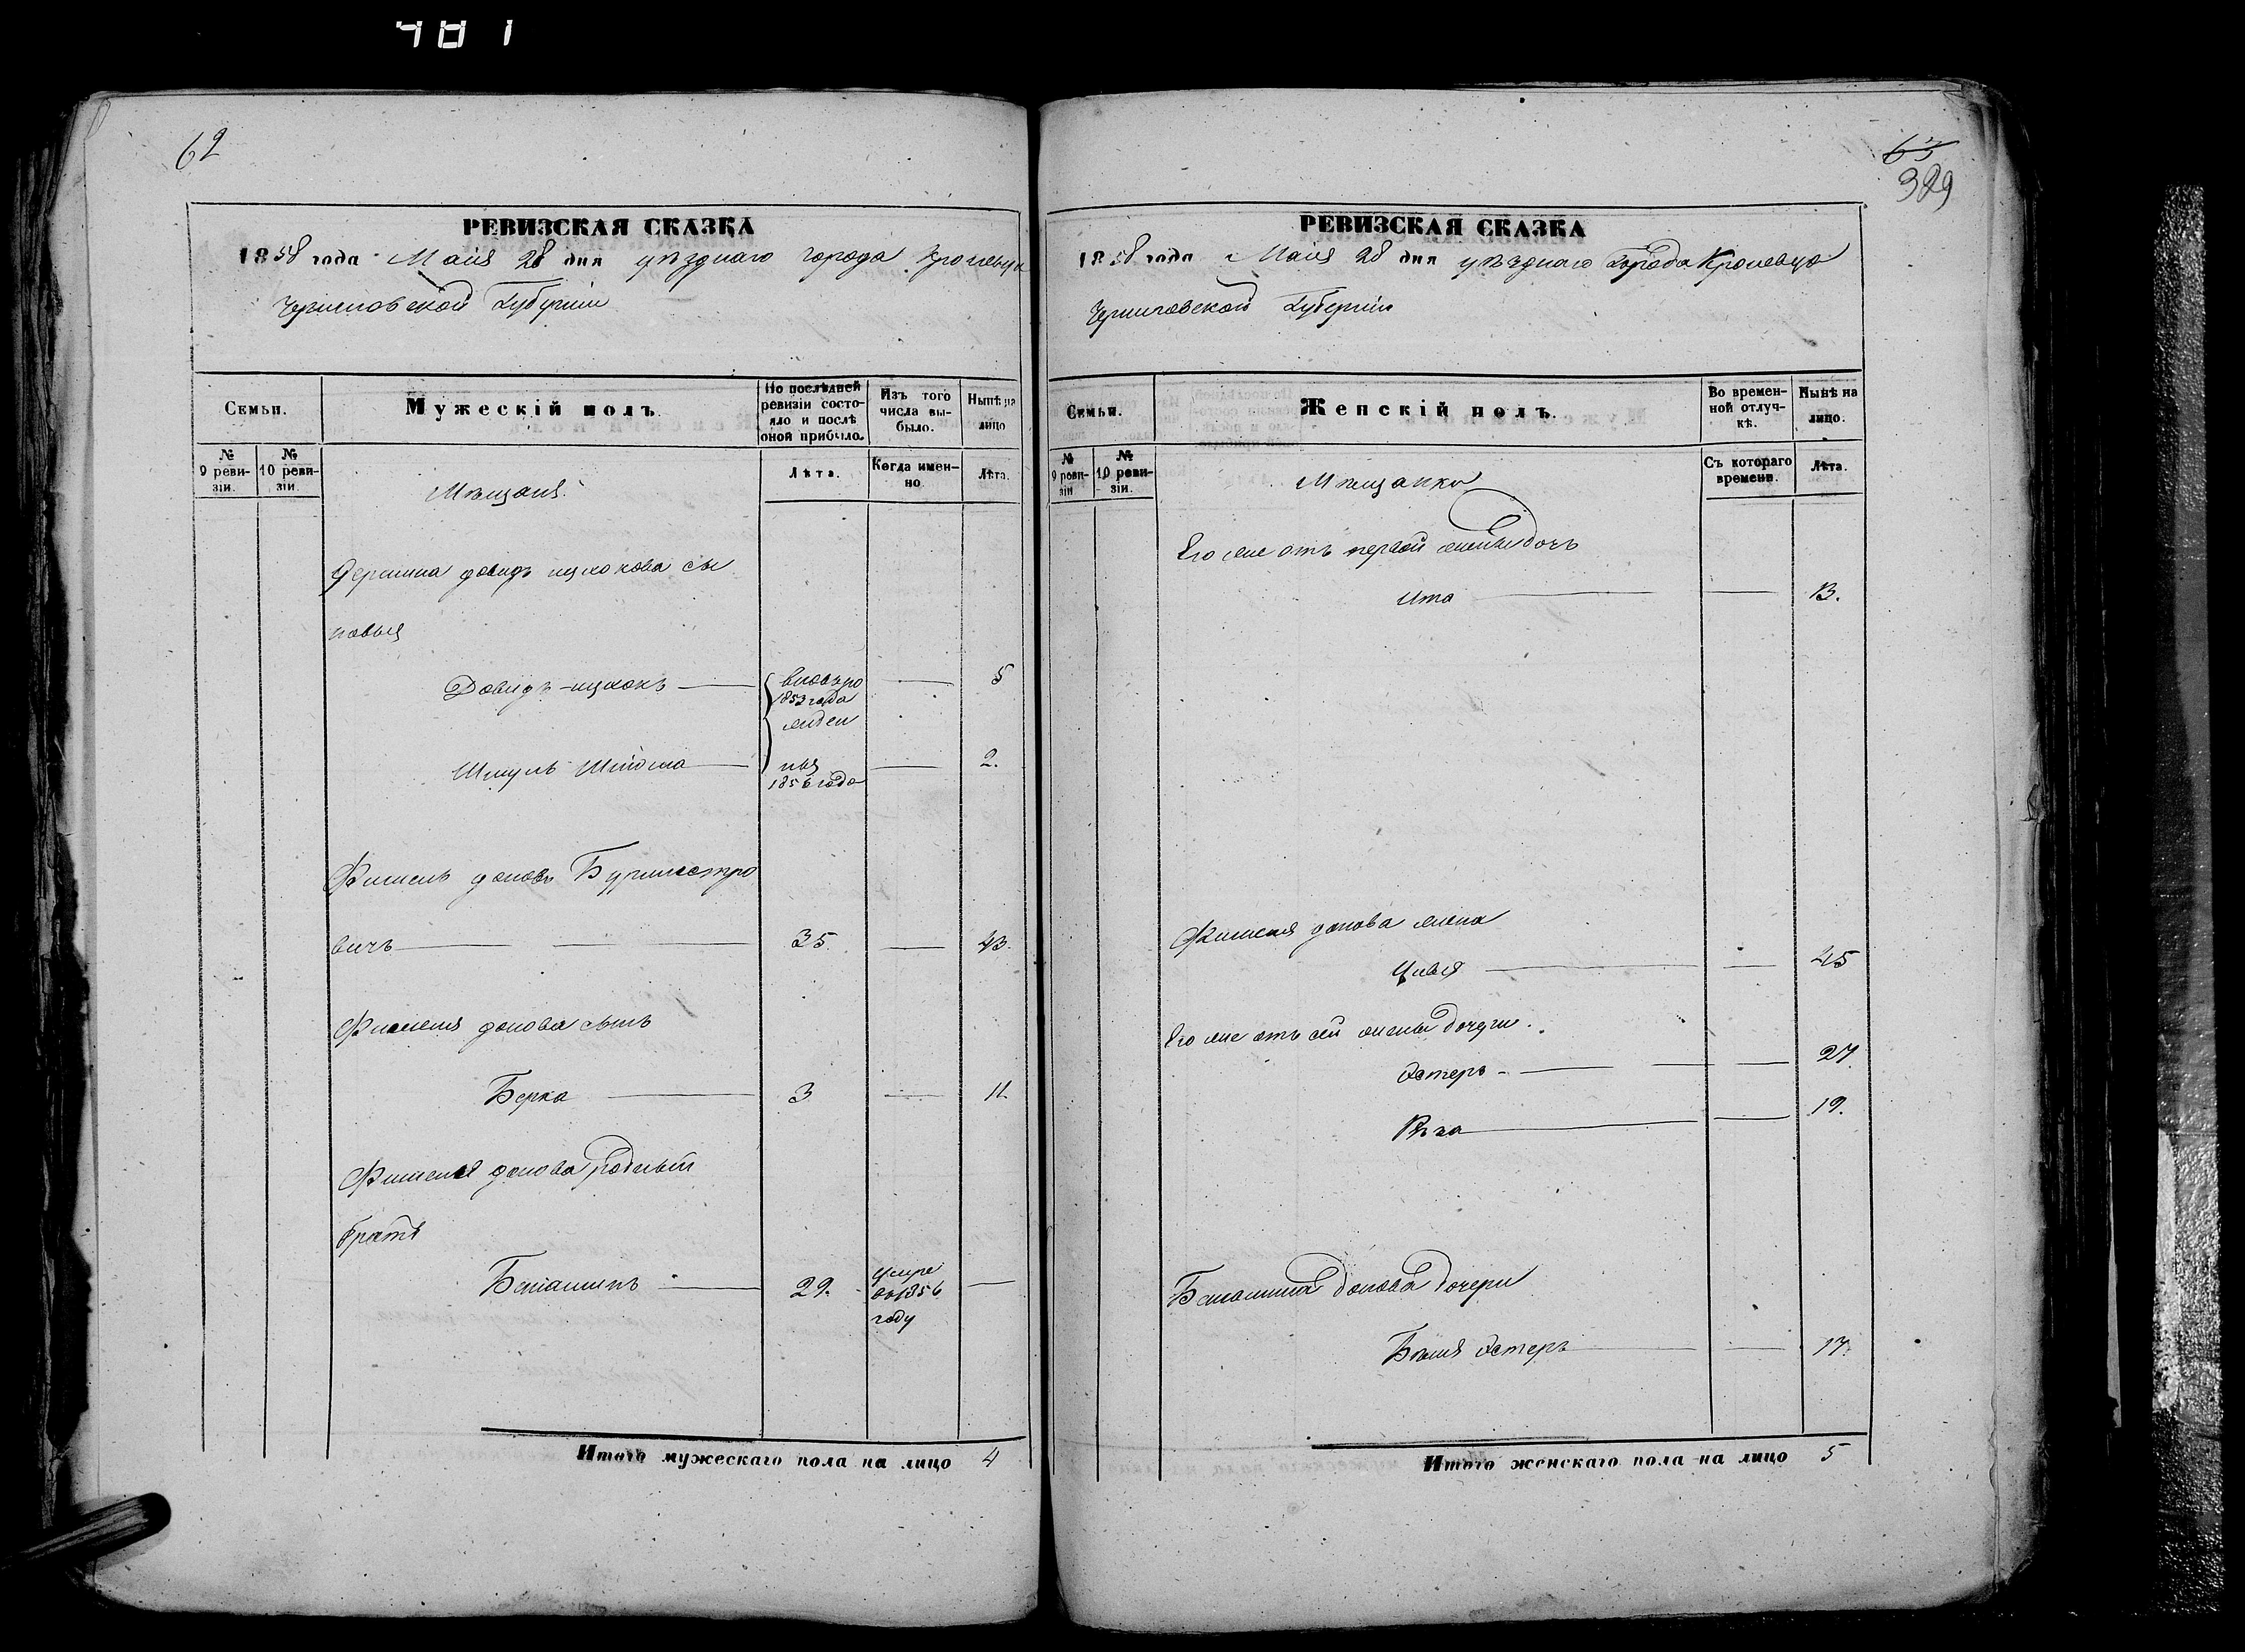 481
62
РЕВИЗСКАЯ СКАЗКА
1858 года Маія 28 дня уѣзднаго города Кролевца
Черниговской Губерніи
Семьи.
Мужескій полъ.
По послѣдней ревизіи состояло и послѣ оной прибыло.
Изъ того числа выбыло.
Нынѣ на лицо
№ 9 ревизіи.
№ 10 ревизіи.
Мѣщане
Лѣта.
Когда именно
Лѣта.
Довидъ ицкокова сы
новья
Довидъ-ицкокъ 5
1853 года
Шмуль 2.
1856 года
Фишель Бурмистро
вичъ 35. 43.
Фишеля сынъ
Берка 3 11.
Фишеля родный
братъ
Беніаминъ 29. умре
въ 1856
году
Итого мужескаго пола на лицо 4
63
389
РЕВИЗСКАЯ СКАЗКА
1858 года Маія 28 дня уѣзднаго города Кролевца
Черниговской Губерніи
Семьи.
Женскій полъ.
Во временной отлучкѣ.
Нынѣ на лицо.
№ 9 ревизіи
№ 10 ревизіи.
Мѣщанки
Съ котораго времени.
Лѣта.
Его же отъ первой жены дочь
Ита 13.
Фишеля жена
Цивья 45
Его же отъ сей жены дочери.
Эстеръ 27
19.
Беніамина дочери
Эстеръ 17.
Итого женскаго пола на лицо 5